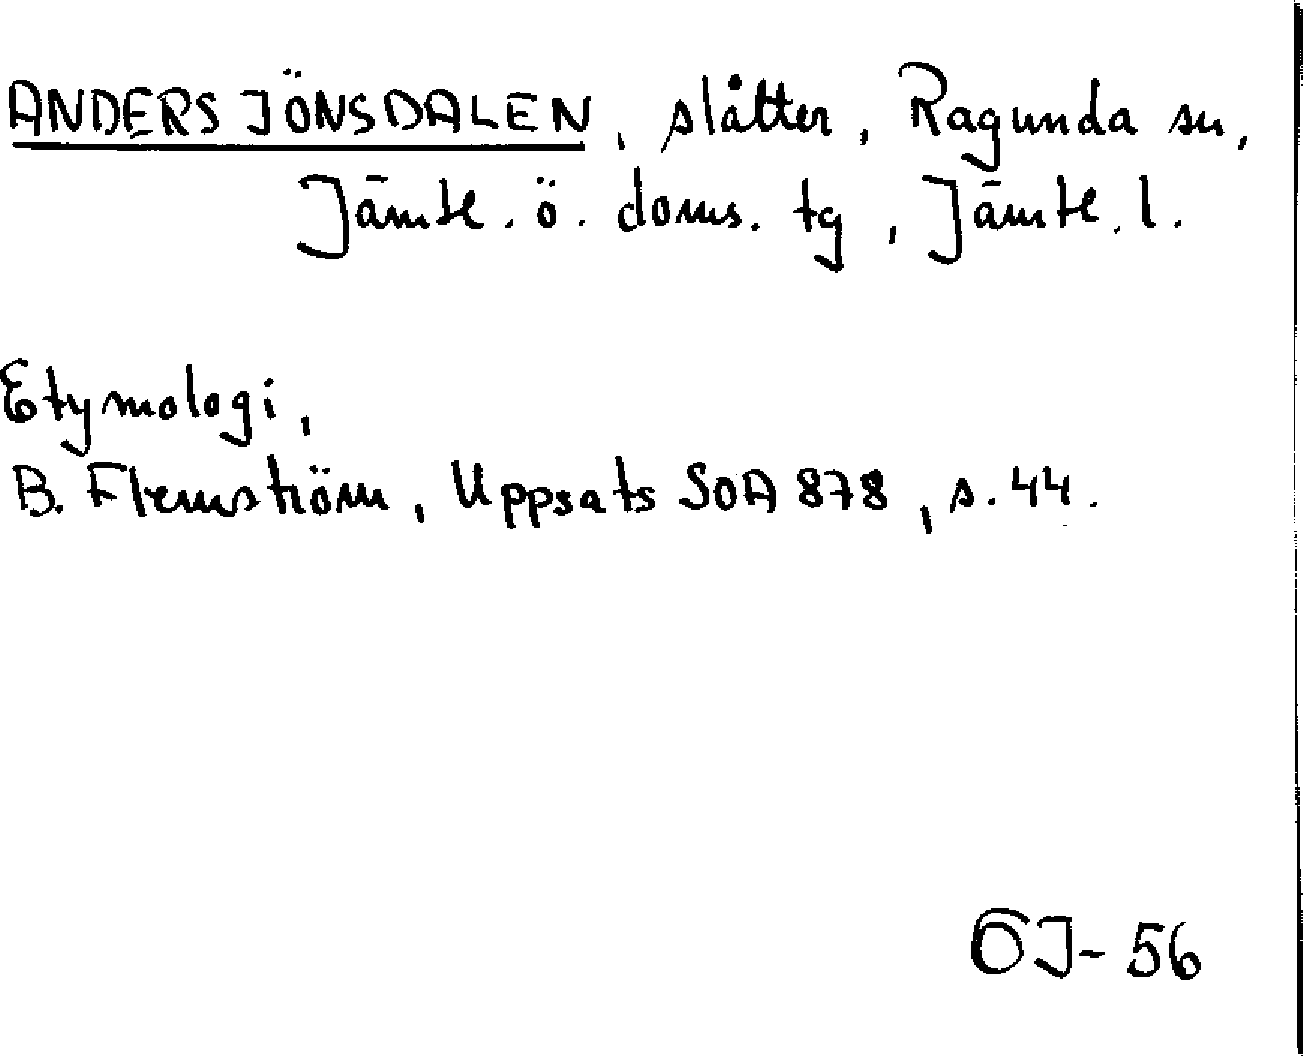 ANDERS JÖNSDALEN, slåtter, Ragunda sn,
Jämtl. ö. doms. tg, Jämtl. l.
Etymologi,
B. Flemström, Uppsats SOA 878, s. 44.
ÖJ-56